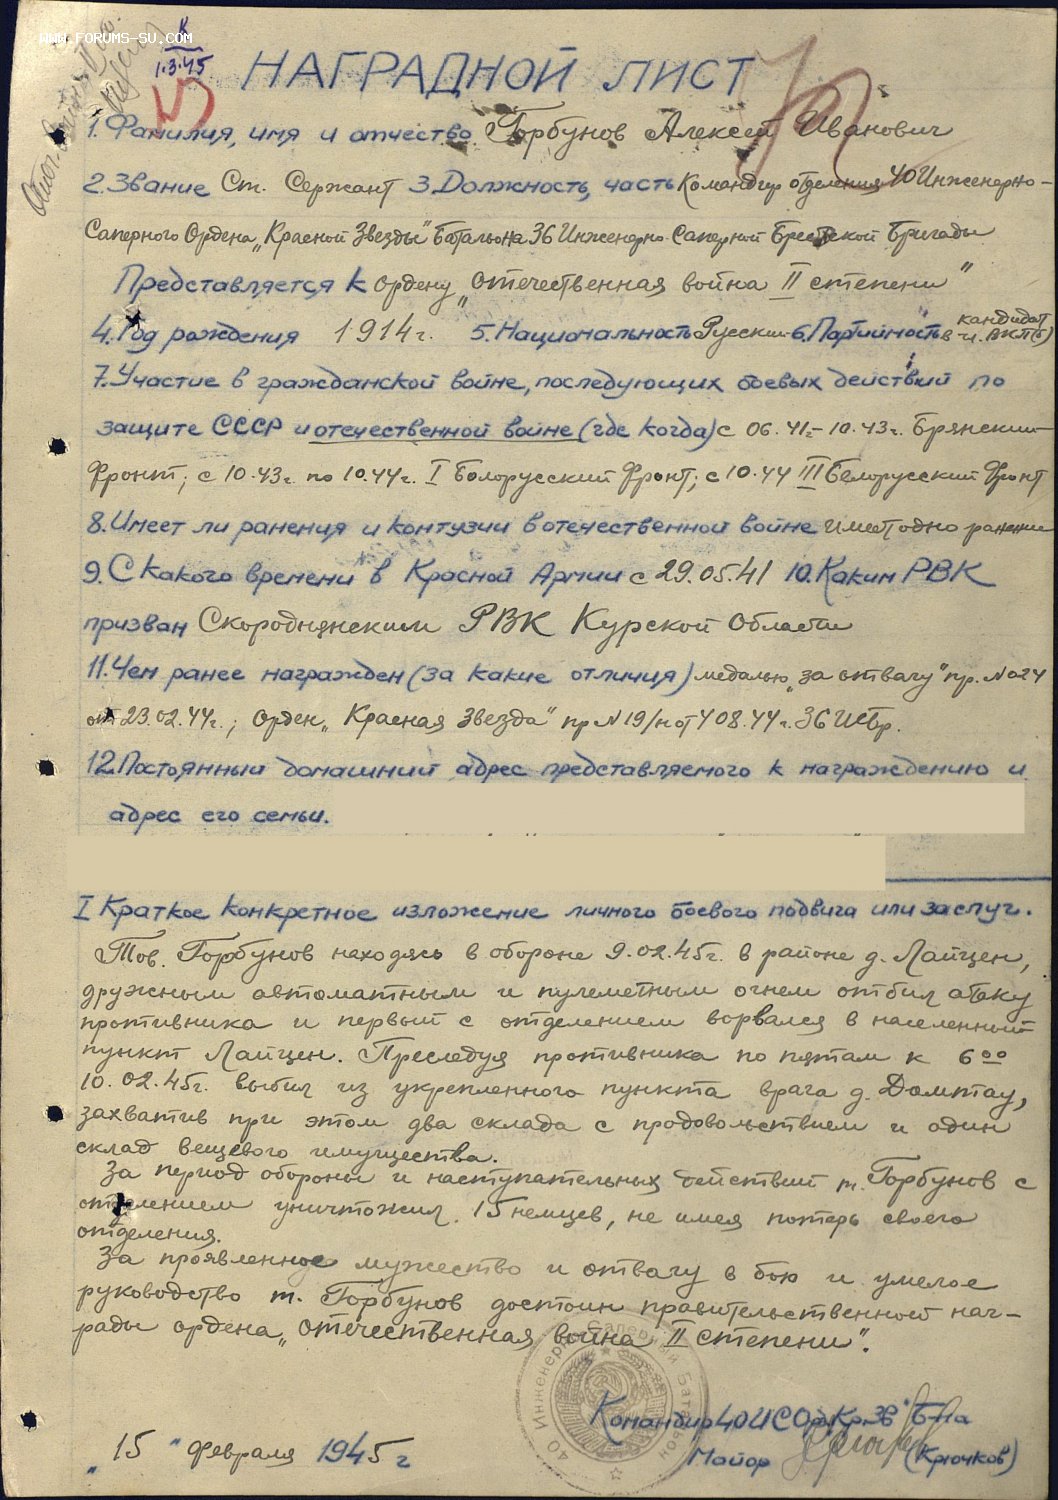 WWW.FORUMS-SU.COM
1.3.45
НАГРАДНОЙ ЛИСТ
1. Фамилия, имя и отчество Горбунов Алексей Иванович
2. Звание Ст. Сержант 3. Должность, часть Командир отделения 40 Инженерно-
Саперного Ордена „Красной Звезды" Батальона 36 Инженерно-Саперной Брестской Бригады
Представляется к ордену „Отечественная война II степени"
4. Год рождения 1914 г. 5. Национальность Русский 6. Партийность кандидат в чл. ВКП(б)
7. Участие в гражданской войне, последующих боевых действий по
защите СССР и отечественной войне (где когда) с 06.41 г.- 10.43 г. Брянский
Фронт; с 10.43 г. по 10.44 г. I Белорусский Фронт; с 10.44 III Белорусский Фронт
8. Имеет ли ранения и контузии в отечественной войне имеет одно ранение
9. С какого времени в Красной Армии с 29.05.41 10. Каким РВК
призван Скороднянским РВК Курской Области
11. Чем ранее награжден (за какие отличия) медалью „за отвагу" пр. № 024
от 23.02.44 г.; Орден „Красная Звезда" пр № 19/н от 4 08.44 г. 36 ИСбр.
12. Постоянный домашний адрес представляемого к награждению и
адрес его семьи.
I Краткое конкретное изложение личного боевого подвига или заслуг.
Тов. Горбунов находясь в обороне 9.02.45 г. в районе д. Лайцен,
дружным автоматным и пулеметным огнем отбил атаку
противника и первый с отделением ворвался в населенный
пункт Лайцен. Преследуя противника по пятам к 6 00
10.02.45 г. выбил из укрепленного пункта врага д. Домтау,
захватив при этом два склада с продовольствием и один
склад вещевого имущества.
За период обороны и наступательных действий т. Горбунов с
отделением уничтожил 15 немцев, не имея потерь своего
отделения.
За проявленное мужество и отвагу в бою и умелое
руководство т. Горбунов достоин правительственной наг-
рады ордена „Отечественная война II степени".
40 Инженерно Саперный Батальон
Командир 40 ИСОрКрЗв Б-на
„15" февраля 1945 г
Майор (Крючков)